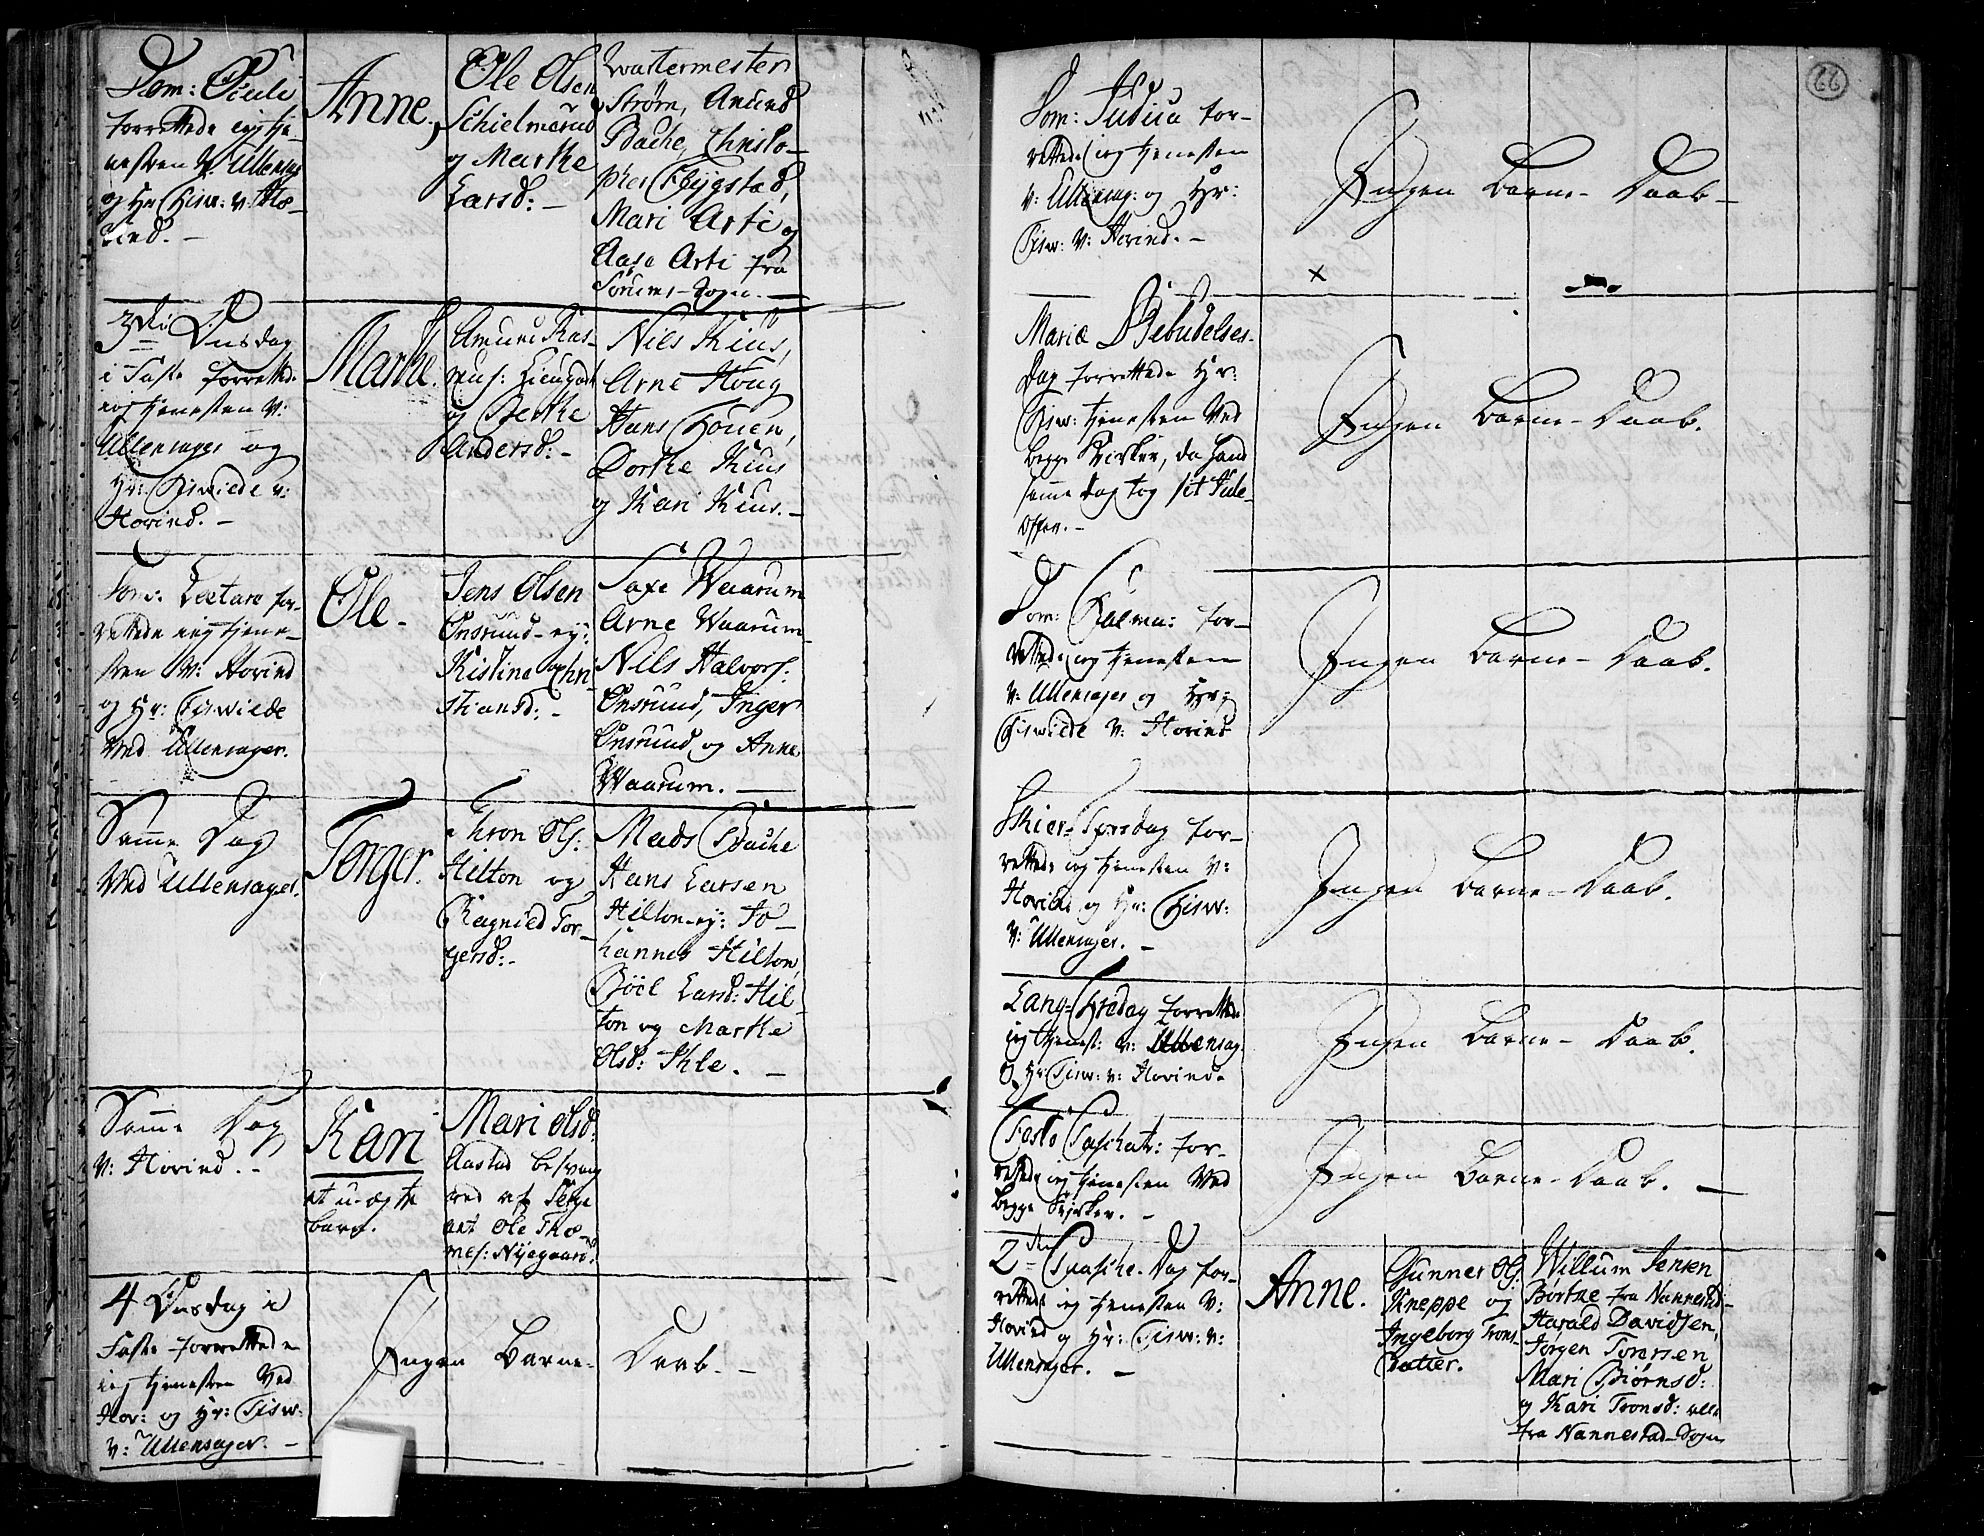 Dom: Oculi
forrettede ieg tje-
nesten v: Ullensag:
og Hr. Tisw: v: Ho-
vind. -
Anne,
Ole Olsen
Schielmerud
og Marthe
Larsd: -
Qvartermester
Strøm, Amund
Bache, Christo-
pher Bÿgstad,
Mari Arti og
Aase Arti fra
Sørums-Sogn. -
3die Onsdag
i Faste forrettede
ieg tjenesten v:
Ullensager og
Hr: Tiswilde v:
Hovind. -
Marthe.
Amund Ras-
mus:
og Berthe
Andersd: -
Nils Kius,
Arne Houg
Hans Houen,
Dorthe Kius
og Kari Kius. -
Dom: Laetare for-
rettede ieg tjene-
sten v: Hovind
og Hr: Tiswilde
ved Ullensager.
Ole.
Jens Olsen
Onsrund-ej:
Kistine Chri-
stiansd: -
Saxe Waarum
Arne Waarum
Nils Halvors:
Onsrund, Inger
Onsrund og Anne
Waarum. -
Samme Dag
ved Ullensager.
Torger.
Thron Ols:
Hilton og
Ragnild Tor-
gersd: -
Mads Bache
Hans Larsen
Hilton-ej: Jo-
hannes Hilton,
Böel Larsd: Hil-
ton og Marthe
Olsd: Ihle. -
Samme Dag
v: Hovind. -
Kari
et u-ægte
barn.
Mari Olsd:
Aastad besvang-
red af Serge-
ant Ole Tho-
mes: Nÿegaard.
4 Onsdag i
Faste forrettede
ieg tjenesten ved
Hov: og Hr: Tisw:
v: Ullensager. -
Ingen Barne-Daab. -
66
Dom: Judica for-
rettede ieg tjenesten
v: Ullensag: og Hr:
Tisw: v: Hovind. -
Ingen Barne-Daab -
Mariæ Bebudelses-
Dag forrettede Hr:
Tisw: tjenesten ved
begge Kirker, da hand
samme dag tog sit Jule-
Offer. -
Ingen Barne-Daab.
Dom: Palma: for-
rettede ieg tjenesten
v: Ullensager og Hr:
Tiswilde v: Hovind
Ingen Barne-Daab.
Skier-Torsdag for-
rettede ieg tjenesten v:
Hovind og Hr: Tisw:
v: Ullensager. -
Ingen Barne-Daab.
Lang-Fredag forrettede
ieg tjenest: v: Ullensag:
og Hr: Tisw: v: Hovind.
Ingen Barne-Daab.
Festo Paschat: for-
rettede ieg tjenesten ved
begge Kirker. -
Ingen Barne-Daab. -
2den Paaske-Dag for-
rettede ieg tjenesten v:
Hovind og Hr: Tisw: v:
Ullensager. -
Anne.
Gunner Ols:
Kneppe og
Ingeborg Trons-
Datter.
Willum Jensen
Borthe fra Nannestad-
Harald Davidsen,
Jørgen Toresen
Mari Biørnsd:
og Kari Tronsd: alle
fra Nannestad-Sogn